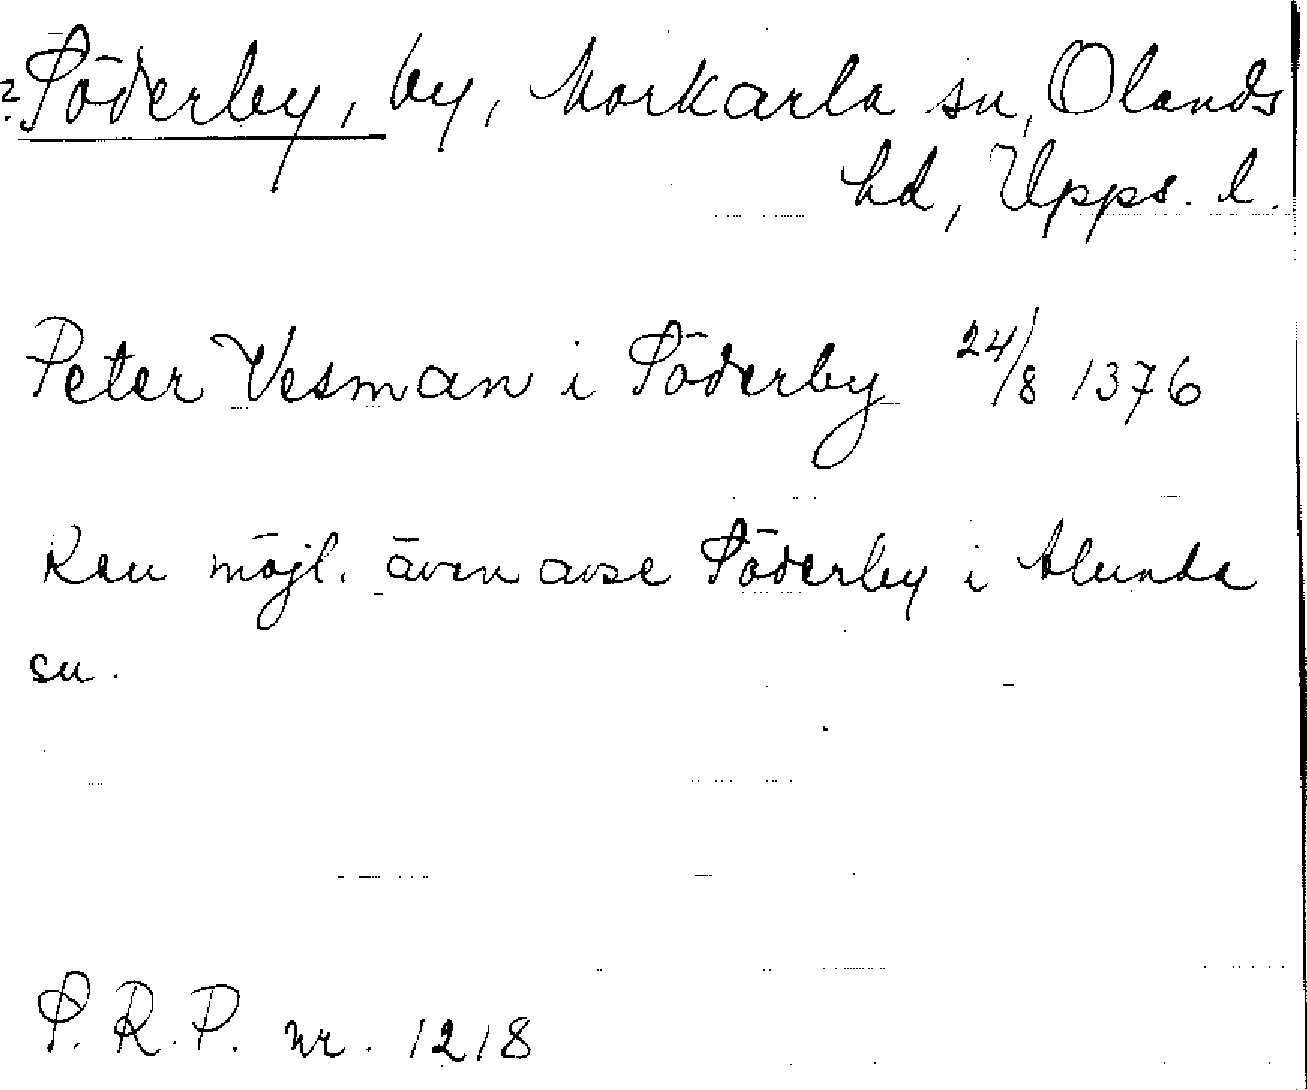 ?Söderby, by, Morkarla sn, Olands
hd, Upps. l.
Peter Vesman i Söderby 24/8 1376
Kan möjl. även avse Söderby i Alunda
sn.
S.R.P. nr. 1218